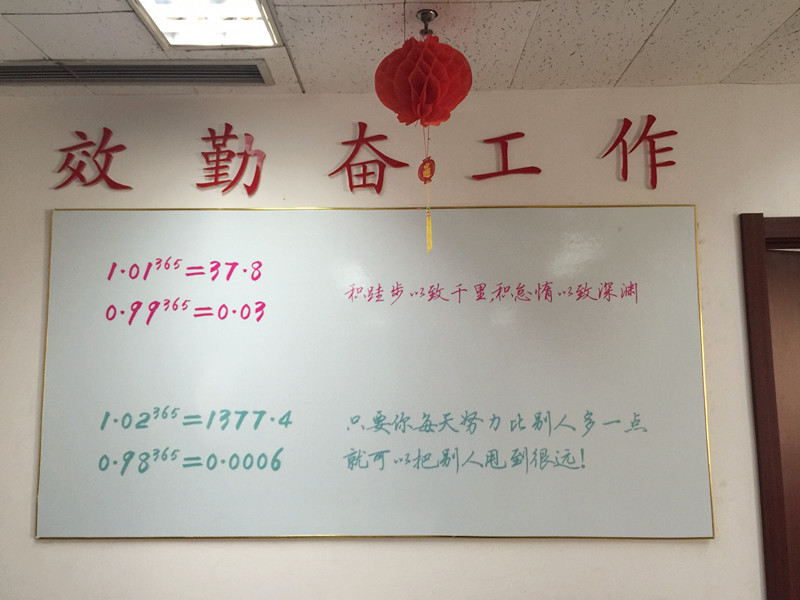 效勤奋工作
1·01³⁶⁵=37·8
0·99³⁶⁵=0·03
积跬步以致千里,积怠惰以致深渊
1·02³⁶⁵=1377·4
0·98³⁶⁵=0·0006
只要你每天努力比别人多一点
就可以把别人甩到很远!